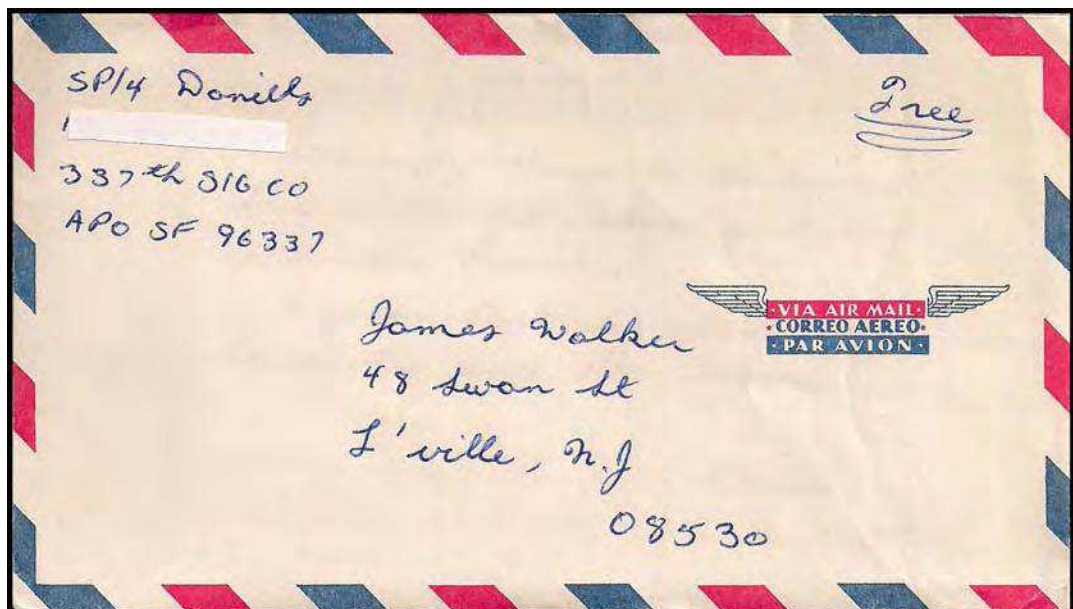 SP/4 Daniells
337th SIG CO
APO SF 96337
Free
·VIA AIR MAIL·
·CORREO AEREO·
·PAR AVION·
James Walker
48 Swan St
L'ville, N.J
08530